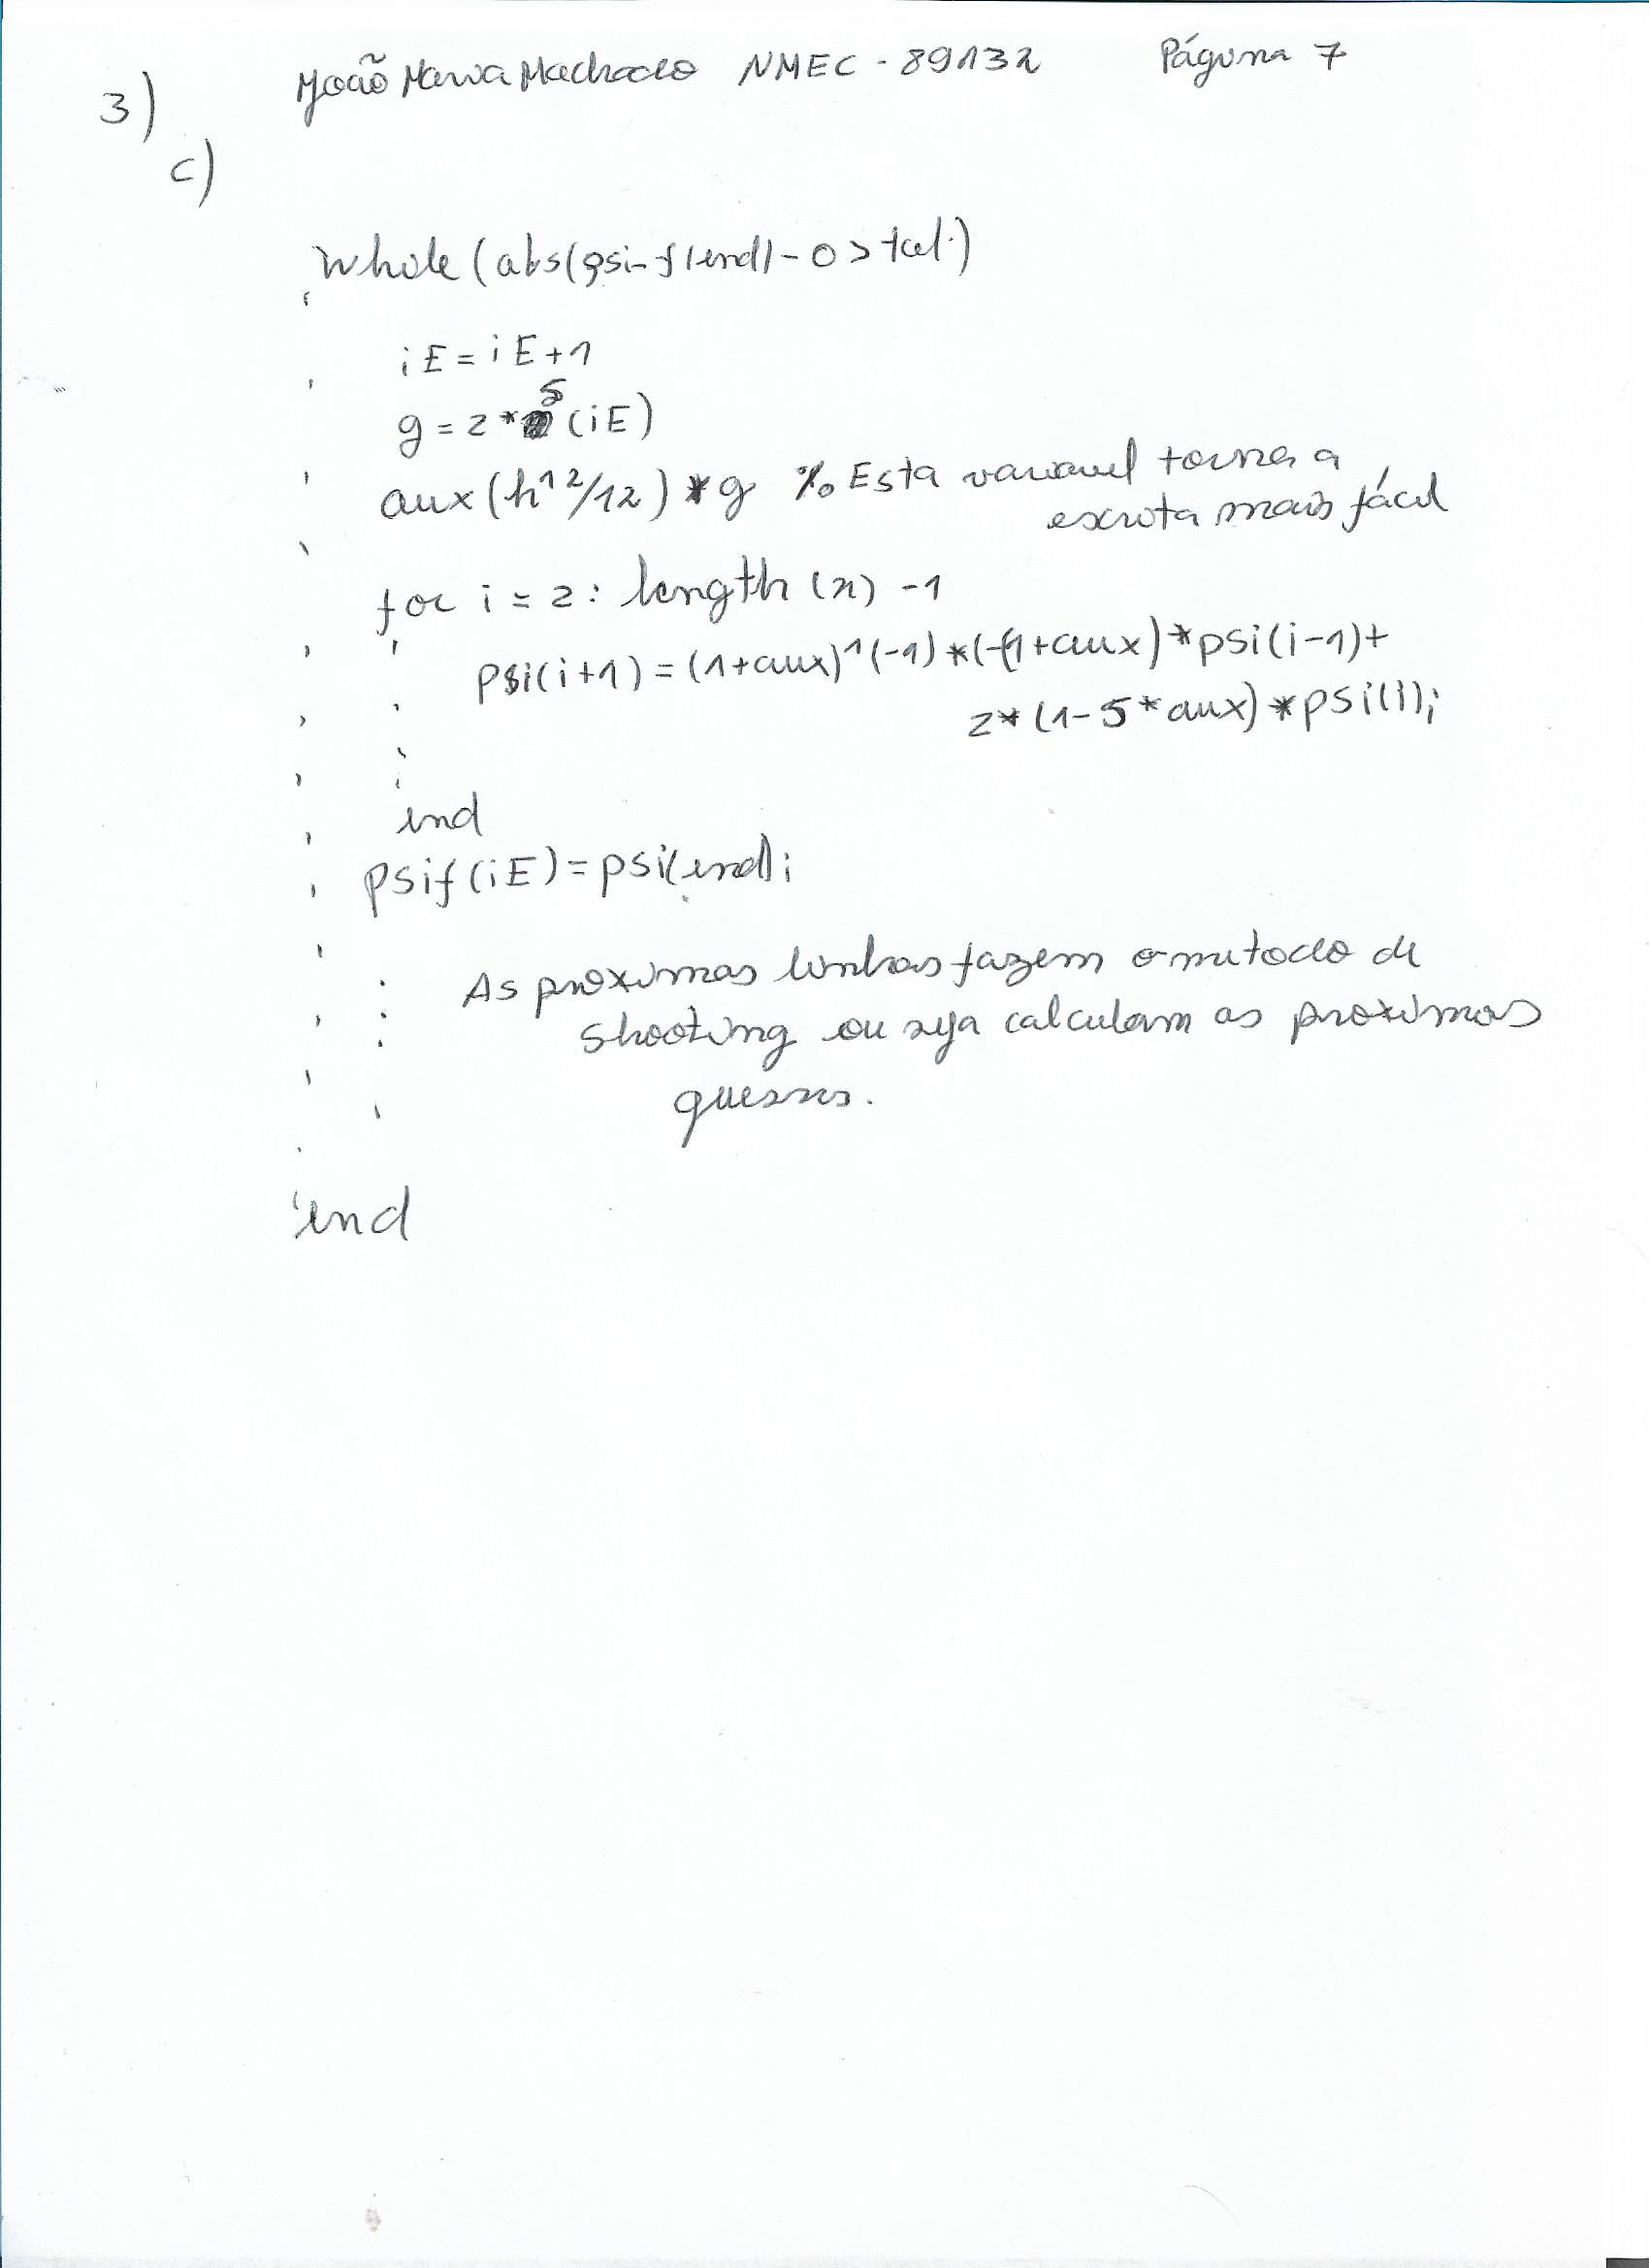 João Maria Machado NMEC - 89132 Página 7
3)
c)
while (abs(psi-f(end) - 0 > tol)
iE = iE + 1
g = 2 * S (iE)
aux (h^2/12) * g % Esta variavel torna a
escrita mais fácil
for i = 2 : length (x) - 1
psi(i+1) = (1+aux)^(-1) * (-(1+aux) * psi(i-1) +
2* (1-5*aux) * psi(i);
end
psif (iE) = psi(end);
As proximas linhas fazem o metodo de
shooting ou seja calculam as proximas
guesses.
end